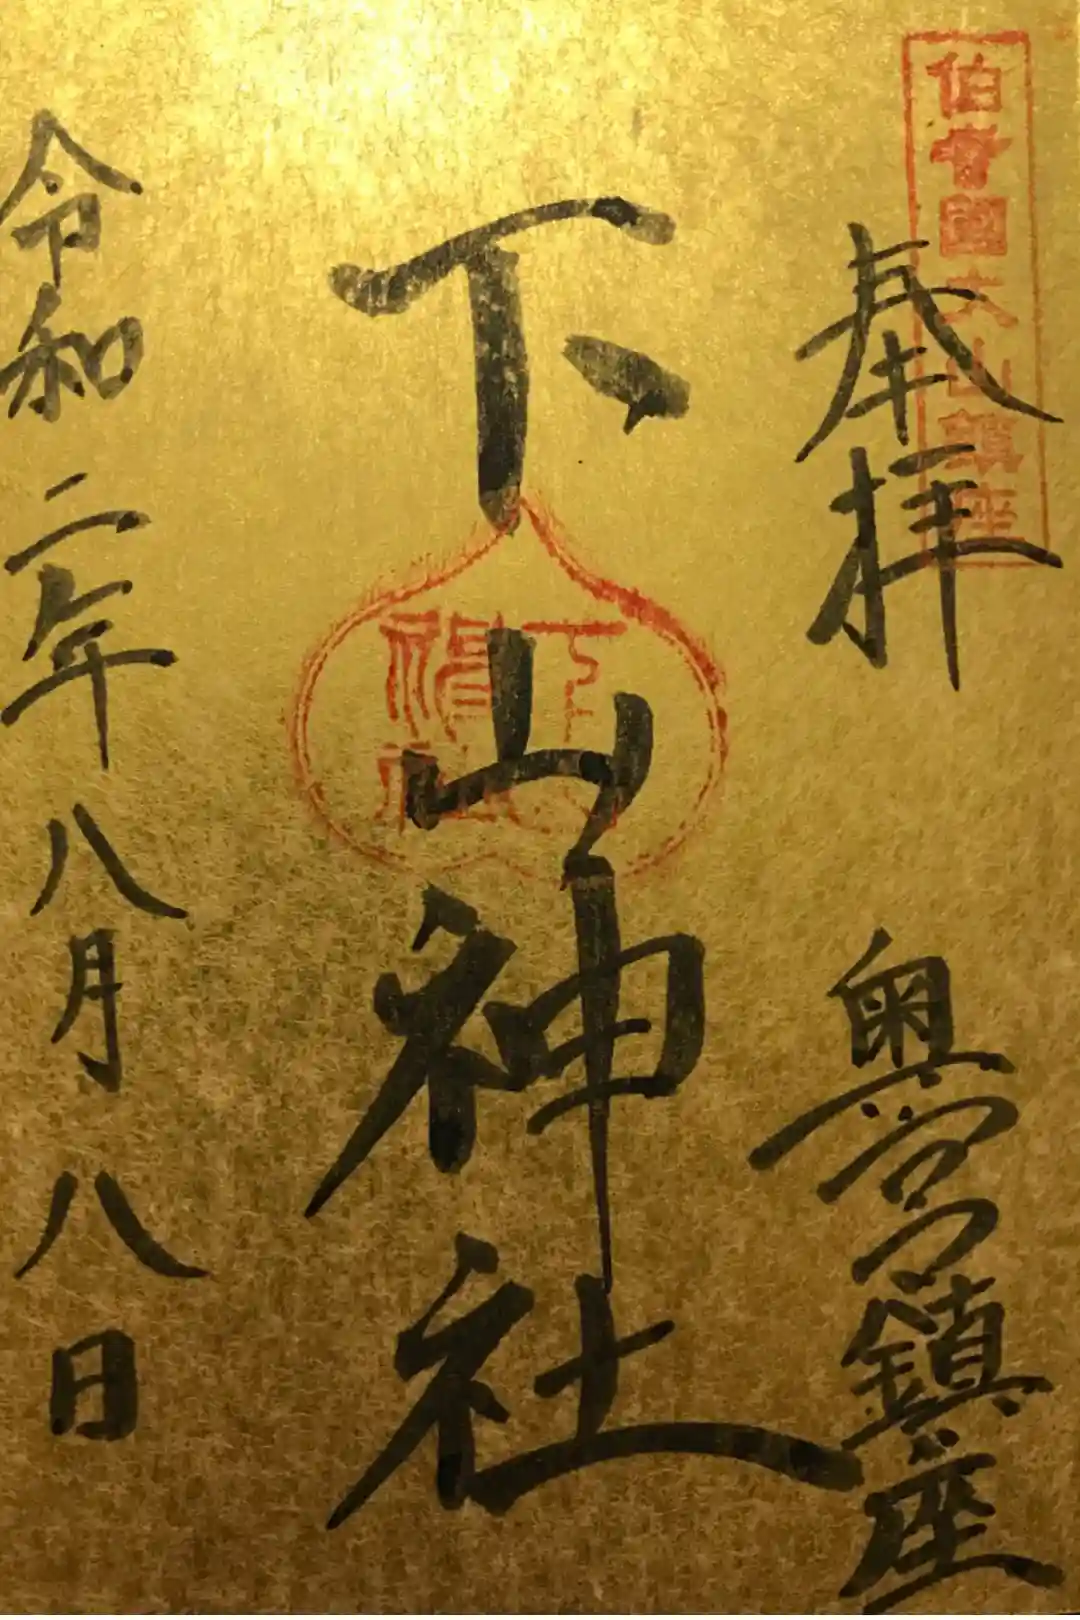 伯耆國大山鎮座
奉拝
奥宮鎮座
下山神社
令和二年八月八日